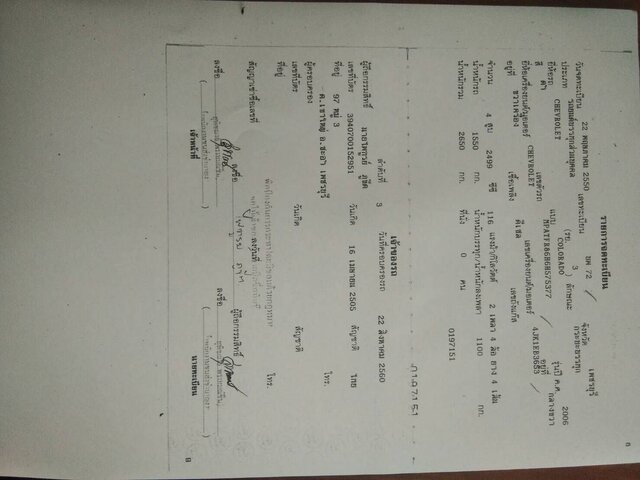 6
รายการจดทะเบียน
วันจดทะเบียน 22 พฤษภาคม 2550 เลขทะเบียน บต 72 จังหวัด เพชรบุรี
ประเภท รถยนต์บรรทุกส่วนบุคคล (รย. 3 ) ลักษณะ กระบะบรรทุก
ยี่ห้อรถ CHEVROLET แบบ COLORADO รุ่นปี ค.ศ. 2006
สี ดำ เลขตัวรถ อยู่ที่ กลางขวา
ยี่ห้อเครื่องยนต์/มอเตอร์ CHEVROLET เลขเครื่องยนต์/มอเตอร์
อยู่ที่ ขวาเครื่อง เชื้อเพลิง ดีเซล เลขถังแก๊ส
จำนวน 4 สูบ 2499 ซีซี 116 แรงม้า/กิโลวัตต์ 2 เพลา 4 ล้อ ยาง 4 เส้น
น้ำหนักรถ 1550 กก. น้ำหนักบรรทุก/น้ำหนักลงเพลา 1100 กก.
น้ำหนักรวม 2650 กก. ที่นั่ง 0 คน
0197151
0197151
เจ้าของรถ
ลำดับที่ 3 วันที่ครอบครองรถ 22 สิงหาคม 2560
ผู้ถือกรรมสิทธิ์
เลขที่บัตร 3940700152951 วันเกิด 16 เมษายน 2505 สัญชาติ ไทย
ที่อยู่ 97 หมู่ 3
ต.เขาใหญ่ อ.ชะอำ เพชรบุรี โทร.
ผู้ครอบครอง
เลขที่บัตร วันเกิด สัญชาติ
ที่อยู่ โทร.
สัญญาเช่าซื้อเลขที่ ลงวันที่
ลงชื่อ ผู้ถือกรรมสิทธิ์
ลงชื่อ เจ้าหน้าที่ ลงชื่อ นายทะเบียน
8